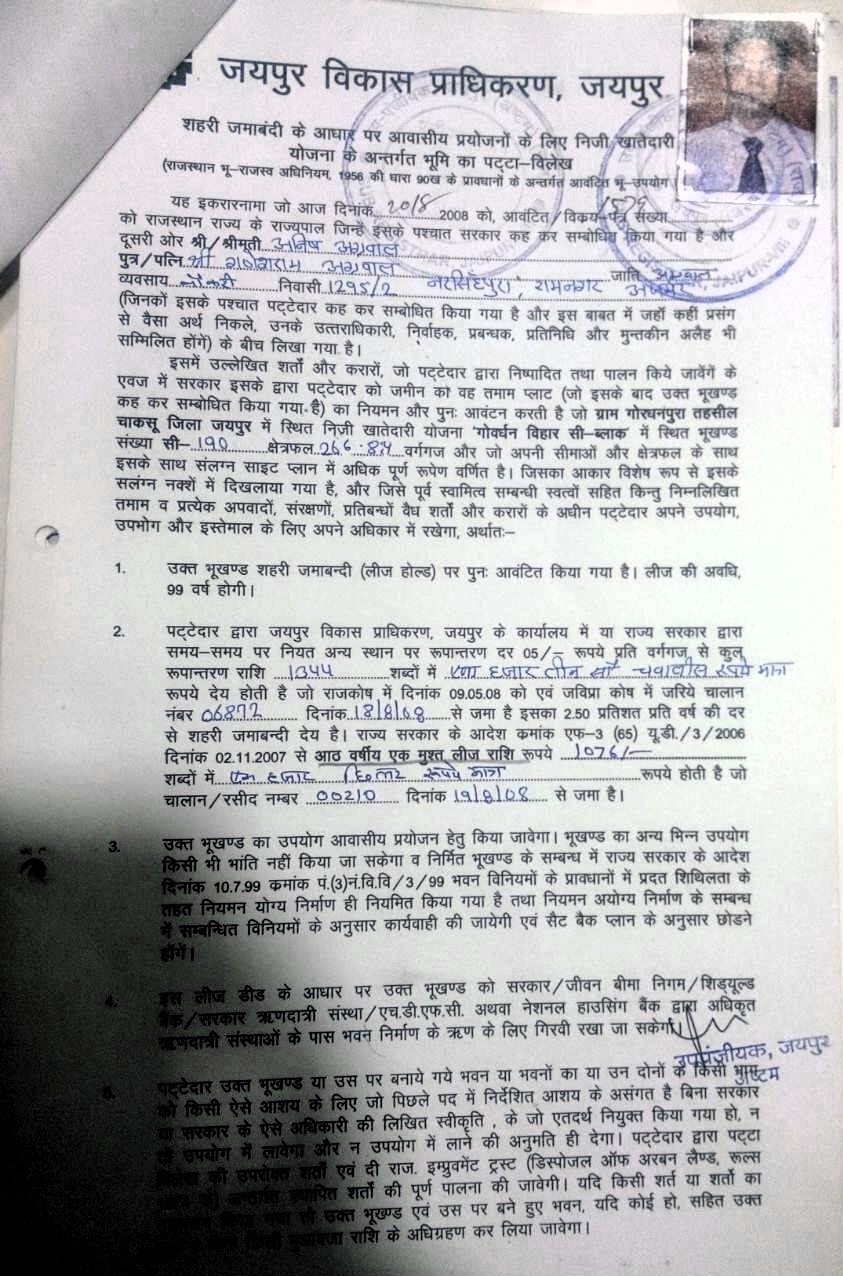 जयपुर विकास प्राधिकरण, जयपुर
शहरी जमाबंदी के आधार पर आवासीय प्रयोजनों के लिए निजी खातेदारी
योजना के अन्तर्गत भूमि का पट्टा–विलेख
(राजस्थान भू–राजस्व अधिनियम, 1956 की धारा 90ख के प्रावधानों के अन्तर्गत आवंटित भू–उपयोग
यह इकरारनामा जो आज दिनांक 20/8 2008 को, आवंटित/विक्रय–पत्र संख्या 1579
को राजस्थान राज्य के राज्यपाल जिन्हें इसके पश्चात सरकार कह कर सम्बोधित किया गया है और
दूसरी ओर श्री/श्रीमती अनिष अग्रवाल
पुत्र/पत्नि श्री गणेशराम अग्रवाल जाति अग्रवाल
व्यवसाय नौकरी निवासी 1295/2 नरसिंहपुरा, रामनगर अजमेर
(जिनकों इसके पश्चात पट्टेदार कह कर सम्बोधित किया गया है और इस बाबत में जहाँ कहीं प्रसंग
से वैसा अर्थ निकले, उनके उत्तराधिकारी, निर्वाहक, प्रबन्धक, प्रतिनिधि और मुन्तकीन अलैह भी
सम्मिलित होंगें) के बीच लिखा गया है।
इसमें उल्लेखित शर्तो और करारों, जो पट्टेदार द्वारा निष्पादित तथा पालन किये जावेंगें के
एवज में सरकार इसके द्वारा पट्टेदार को जमीन का वह तमाम प्लाट (जो इसके बाद उक्त भूखण्ड
कह कर सम्बोधित किया गया है) का नियमन और पुनः आवंटन करती है जो ग्राम गोरधनपुरा तहसील
चाकसू जिला जयपुर में स्थित निजी खातेदारी योजना 'गोवर्धन विहार सी–ब्लाक' में स्थित भूखण्ड
संख्या सी–190 क्षेत्रफल 266.84 वर्गगज और जो अपनी सीमाओं और क्षेत्रफल के साथ
इसके साथ संलग्न साइट प्लान में अधिक पूर्ण रूपेण वर्णित है। जिसका आकार विशेष रूप से इसके
सलंग्न नक्शें में दिखलाया गया है, और जिसे पूर्व स्वामित्व सम्बन्धी स्वत्वों सहित किन्तु निम्नलिखित
तमाम व प्रत्येक अपवादों, संरक्षणों, प्रतिबन्धों वैध शर्तो और करारों के अधीन पट्टेदार अपने उपयोग,
उपभोग और इस्तेमाल के लिए अपने अधिकार में रखेगा, अर्थातः–
1. उक्त भूखण्ड शहरी जमाबन्दी (लीज होल्ड) पर पुनः आवंटित किया गया है। लीज की अवधि,
99 वर्ष होगी।
2. पट्टेदार द्वारा जयपुर विकास प्राधिकरण, जयपुर के कार्यालय में या राज्य सरकार द्वारा
समय–समय पर नियत अन्य स्थान पर रूपान्तरण दर 05/– रूपये प्रति वर्गगज से कुल
रूपान्तरण राशि 1344 शब्दों में एक हजार तीन सौ चवालीस रूपये मात्र
रूपये देय होती है जो राजकोष में दिनांक 09.05.08 को एवं जविप्रा कोष में जरिये चालान
नंबर 06872 दिनांक 18/8/08 से जमा है इसका 2.50 प्रतिशत प्रति वर्ष की दर
से शहरी जमाबन्दी देय है। राज्य सरकार के आदेश क्रमांक एफ–3 (65) यू.डी./3/2006
दिनांक 02.11.2007 से आठ वर्षीय एक मुश्त लीज राशि रूपये 1076/–
शब्दों में एक हजार छिहत्तर रूपये मात्र रूपये होती है जो
चालान/रसीद नम्बर 00210 दिनांक 19/8/08 से जमा है।
3. उक्त भूखण्ड का उपयोग आवासीय प्रयोजन हेतु किया जावेगा। भूखण्ड का अन्य भिन्न उपयोग
किसी भी भांति नहीं किया जा सकेगा व निर्मित भूखण्ड के सम्बन्ध में राज्य सरकार के आदेश
दिनांक 10.7.99 क्रमांक पं.(3)नं.वि.वि/3/99 भवन विनियमों के प्रावधानों में प्रदत शिथिलता के
तहत नियमन योग्य निर्माण ही नियमित किया गया है तथा नियमन अयोग्य निर्माण के सम्बन्ध
में सम्बन्धित विनियमों के अनुसार कार्यवाही की जायेगी एवं सैट बैक प्लान के अनुसार छोडने
होंगें।
4. इस लीज डीड के आधार पर उक्त भूखण्ड को सरकार/जीवन बीमा निगम/शिड्यूल्ड
बैंक/सरकार ऋणदात्री संस्था/एच.डी.एफ.सी. अथवा नेशनल हाउसिंग बैंक द्वारा अधिकृत
ऋणदात्री संस्थाओं के पास भवन निर्माण के ऋण के लिए गिरवी रखा जा सकेगा।
उपपंजीयक, जयपुर
अष्टम
5. पट्टेदार उक्त भूखण्ड या उस पर बनाये गये भवन या भवनों का या उन दोनों के किसी भाग
को किसी ऐसे आशय के लिए जो पिछले पद में निर्देशित आशय के असंगत है बिना सरकार
या सरकार के ऐसे अधिकारी की लिखित स्वीकृति , के जो एतदर्थ नियुक्त किया गया हो, न
तो उपयोग में लावेगा और न उपयोग में लाने की अनुमति ही देगा। पट्टेदार द्वारा पट्टा
की उपरोक्त शर्तो एवं दी राज. इम्प्रुवमेंट ट्रस्ट (डिस्पोजल ऑफ अरबन लैण्ड, रूल्स
अन्तर्गत स्थापित शर्तो की पूर्ण पालना की जावेगी। यदि किसी शर्त या शर्तो का
उक्त भूखण्ड एवं उस पर बने हुए भवन, यदि कोई हो, सहित उक्त
राशि के अधिग्रहण कर लिया जावेगा।